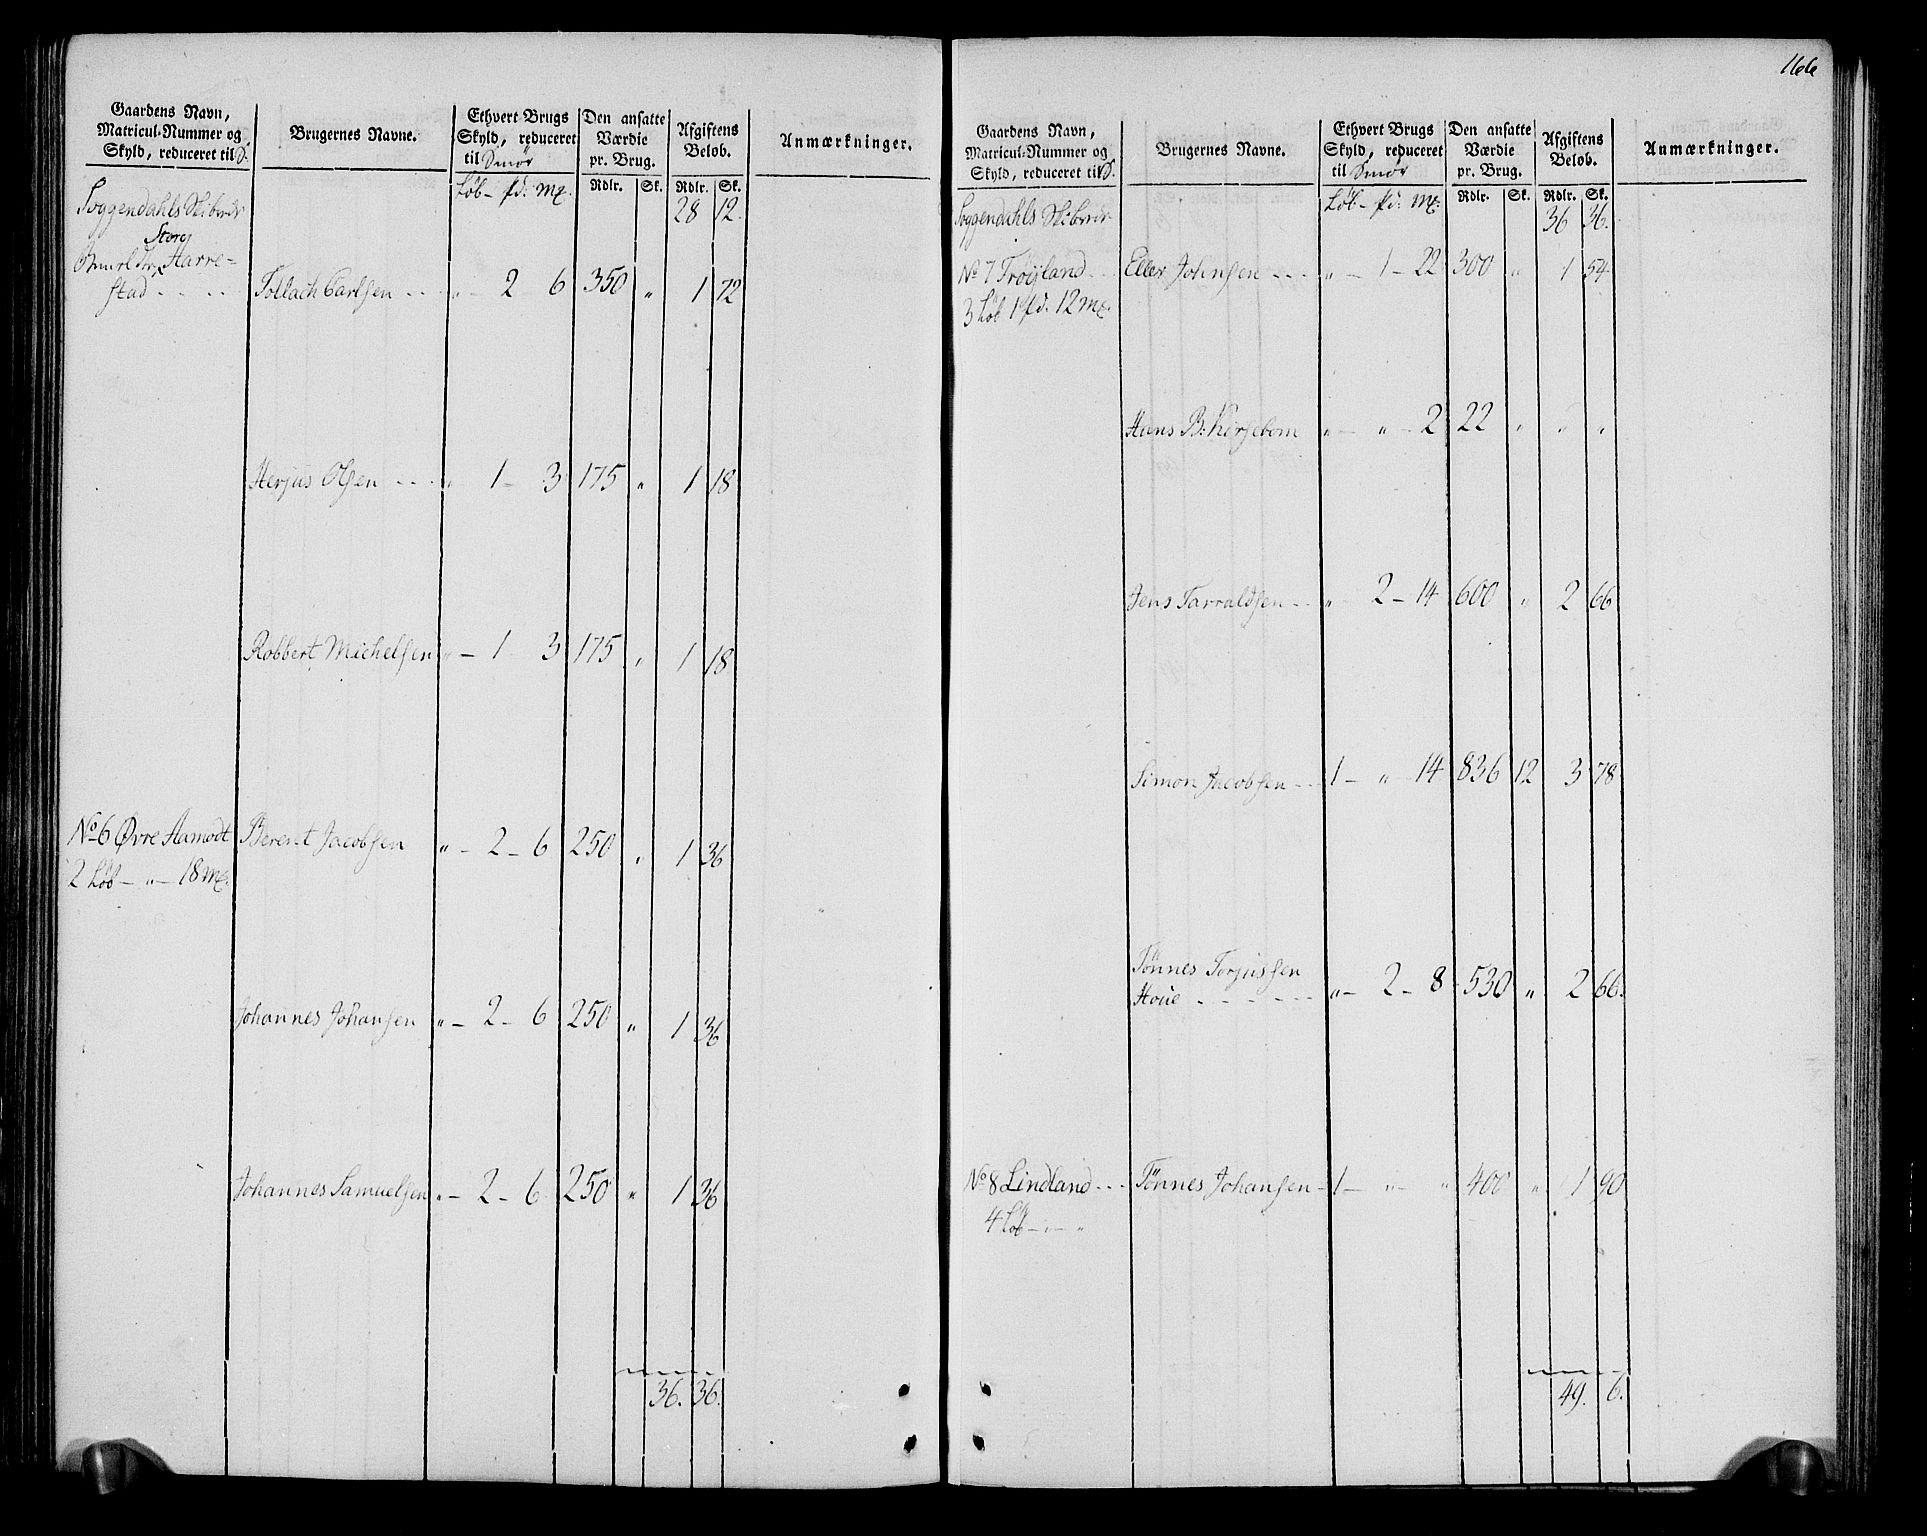 166
Gaardens Navn,
Matricul-Nummer og
Skyld, reduceret til S.
Brugernes Navne.
Ethvert Brugs
Skyld, reduceret
til Smør
Løb - pd: mk.
Den ansatte
Værdie
pr. Brug.
Rdlr. Sk.
Afgiftens
Beløb.
Rdlr. Sk.
Anmærkninger.
Soggendahls Skibrede 28 12.
Store
Aarre-
stad - - - - Tollach Carlsen - - - " - 2 6 350 " 1 72
Herjus Olsen - - - " 1 - 3 175 " 1 18
Robbert Michelsen " - 1 3 175 " 1 18
No 6 Øvre Aamodt Berent Jacobsen " - 2 - 6 250 " 1 36
2 Løb - " - 18 mk.
Johannes Johansen " - 2 - 6 250 " 1 36
Johannes Samuelsen " - 2 - 6 250 " 1 36
36. 36.
Gaardens Navn,
Matricul-Nummer og
Skyld, reduceret til S.
Brugernes Navne.
Ethvert Brugs
Skyld, reduceret
til Smør
Løb - pd: mk:
Den ansatte
Værdie
pr. Brug.
Rdlr. Sk.
Afgiftens
Beløb.
Rdlr. Sk.
Anmærkninger.
Soggendahls Skibrede 36 36.
No 7 Trøjland - - Eller Johnsen - - - " - 1 - 22 300 " 1 54
3 Løb 1 pd. 12 mk.
Hans B: Kirsebom " - " - 2 22 " " "
Jens Tarraldsen - - " - 2 - 14 600 " 2 66
Simon Jacobsen - - 1 - " - 14 836 12 3 78
Tønnes Torjussen
Houe - - - - - - " - 2 - 8 530 " 2 66.
No 8 Lindland - - - Tønnes Johansen - 1 - " - " 400 " 1 90
4 Løb - " - "
49. 6.